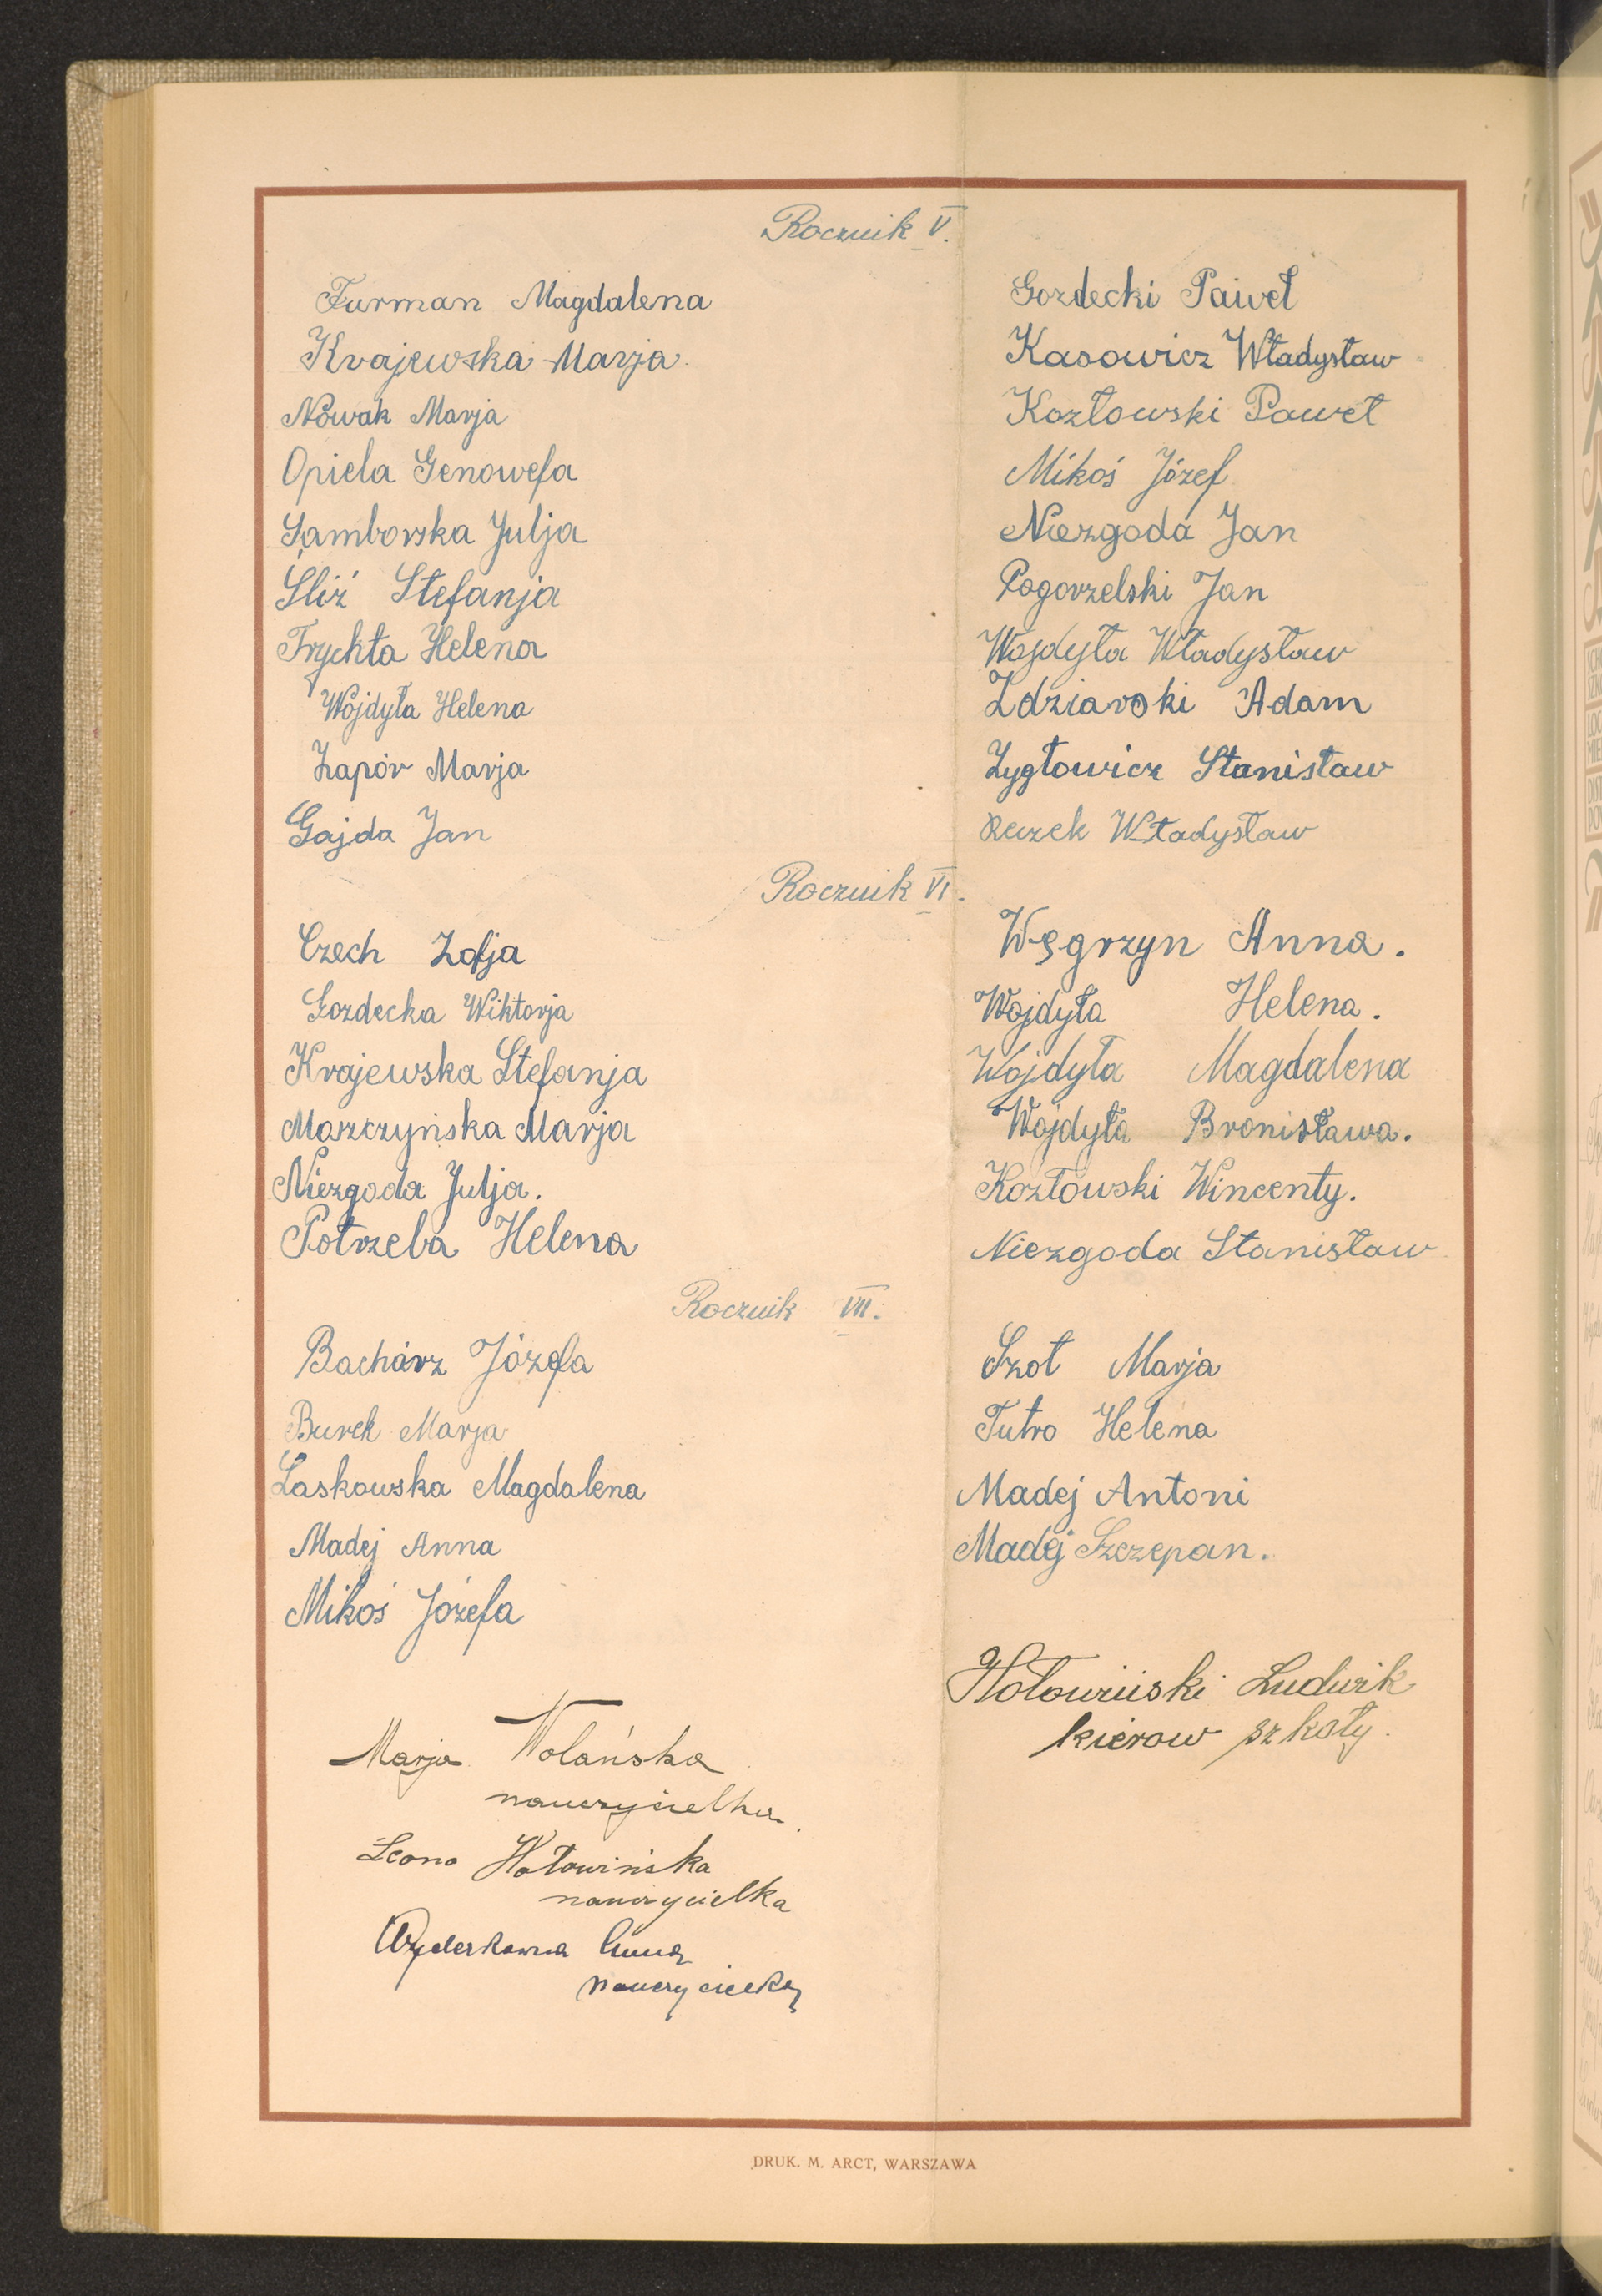 Rocznik V.
Furman Magdalena
Krajewska Marja.
Nowak Marja
Opiela Genowefa
Samborska Julja
Śliź Stefanja
Trychta Helena
Wojdyła Helena
Zapór Marja
Gajda Jan
Gozdecki Paweł
Kasowicz Władysław
Kozłowski Paweł
Mikoś Józef
Niezgoda Jan
Pogorzelski Jan
Wojdyła Władysław
Zdziarski Adam
Zygłowicz Stanisław
Reczek Władysław
Rocznik VI.
Czech Zofja
Gozdecka Wiktorja
Krajewska Stefanja
Marczyńska Marja
Niezgoda Julja.
Potrzeba Helena
Węgrzyn Anna.
Wojdyła Helena.
Wojdyła Magdalena
Wojdyła Bronisława.
Kozłowski Wincenty.
Niezgoda Stanisław
Rocznik VII.
Bachórz Józefa
Burek Marja
Laskowska Magdalena
Madej Anna
Mikoś Józefa
Szot Marja
Tutro Helena
Madej Antoni
Madej Szczepan.
Hołowiński Ludwik
kierow szkoły.
Marja Wolańska
nauczycielka.
Leona Hołowińska
nauczycielka
Anna
nauczycielka
DRUK. M. ARCT, WARSZAWA